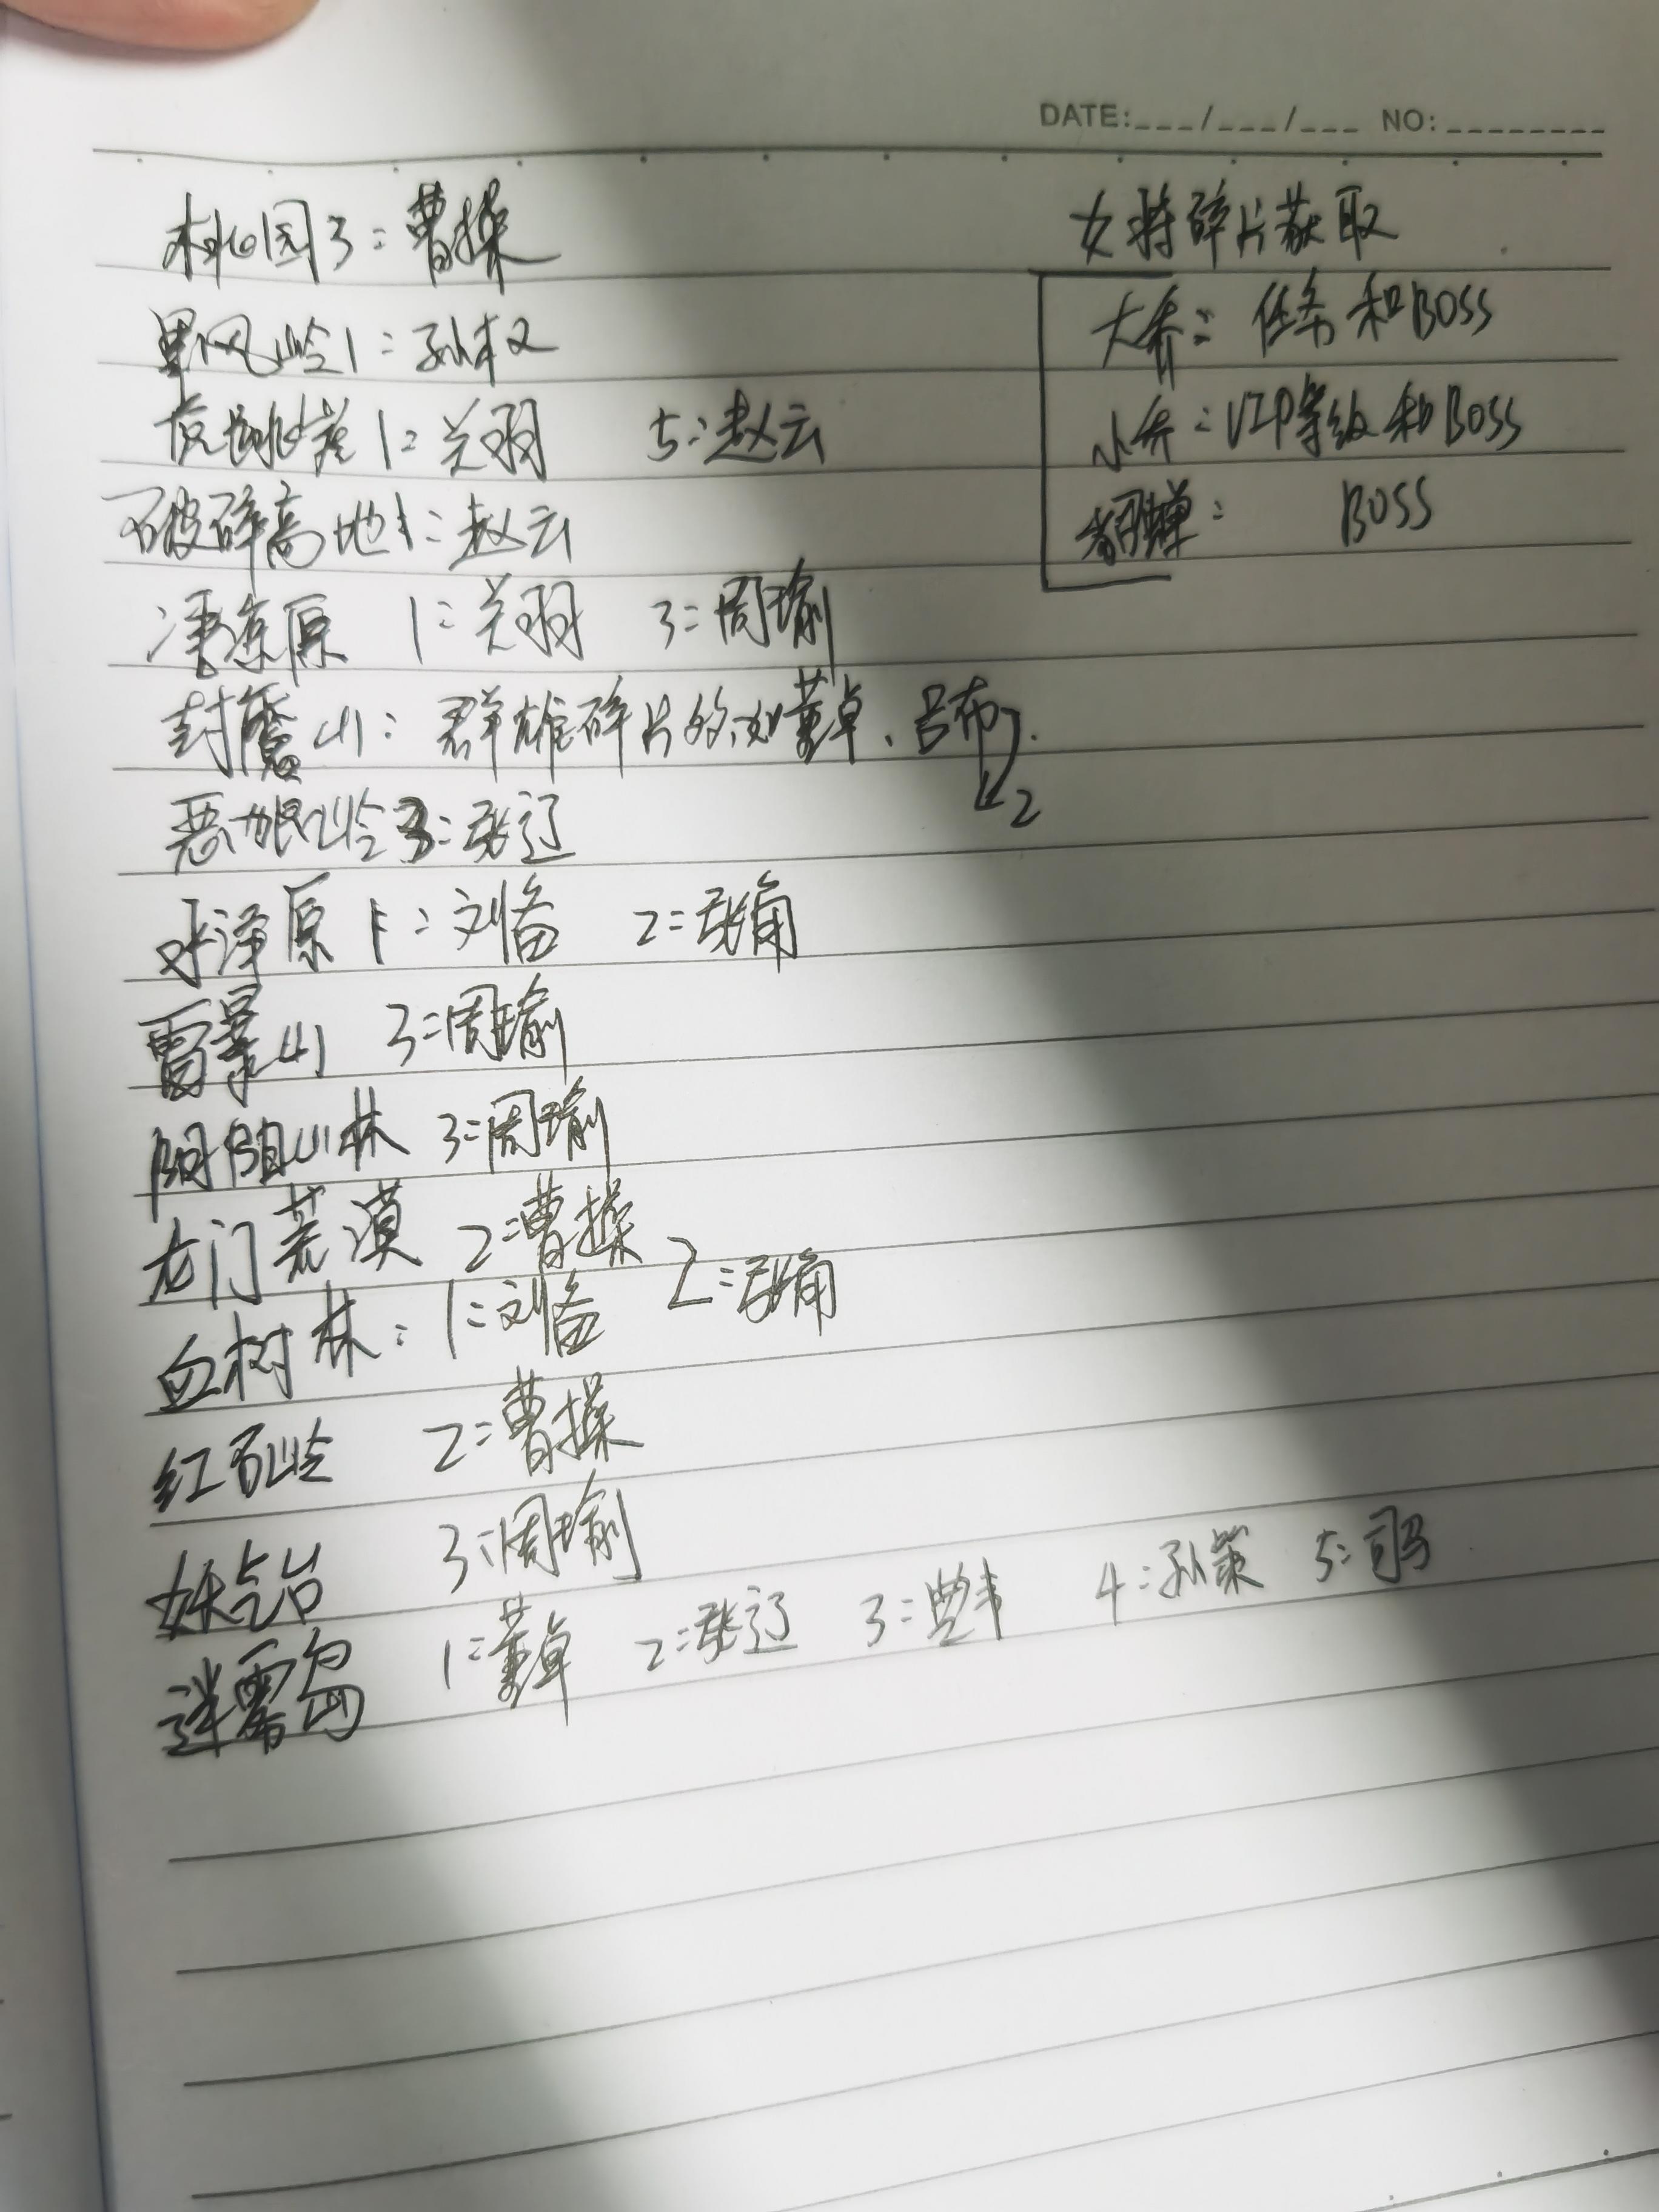 DATE:___/___/___ NO:________
桃园3:曹操
黑风岭1:孙权
1:关羽 5:赵云
破碎高地1:赵云
凄凉原 1:关羽 3:周瑜
封魔山:群雄碎片的,如董卓、吕布
2
恶狼岭3:张辽
水泽原1:刘备 2:张角
雷暴山 3:周瑜
山林 3:周瑜
龙门荒漠 2:曹操
血树林:1:刘备 2:张角
红石岭 2:曹操
妖气台 3:周瑜
迷雾岛 1:董卓 2:张辽 3:典韦 4:孙策 5:司马
女将碎片获取
大乔:任务和BOSS
小乔:VIP等级和BOSS
貂蝉: BOSS